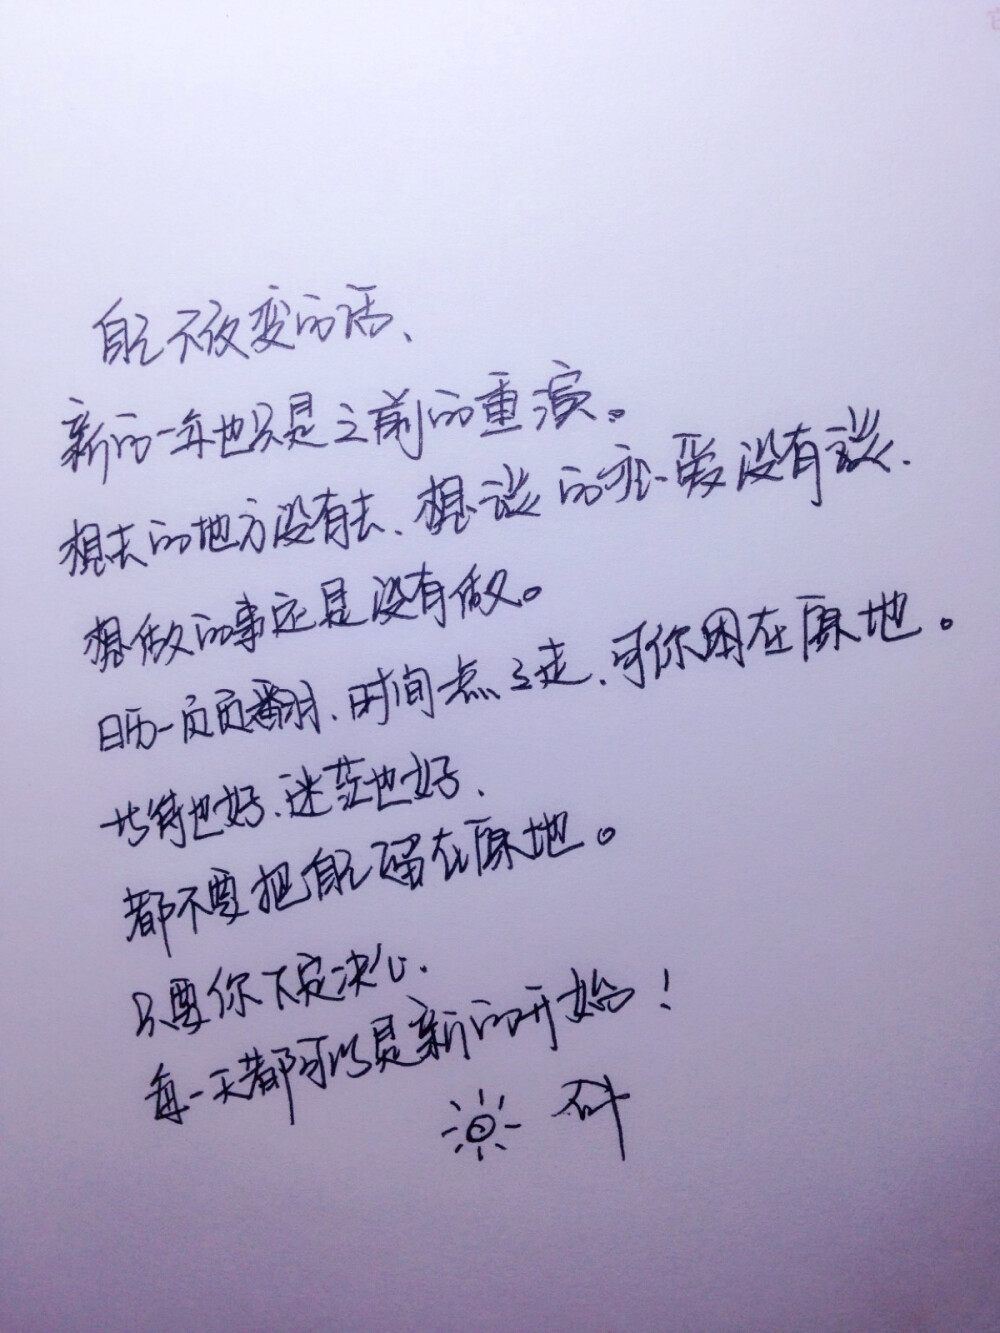 自己不改变的话、
新的一年也只是之前的重演。
想去的地方没有去、想谈的恋爱没有谈、
想做的事还是没有做。
日历一页页翻、时间一点点走、可你困在原地。
也好、迷茫也好、
都不要把自己留在原地。
只要你下定决心、
每一天都可以是新的开始！